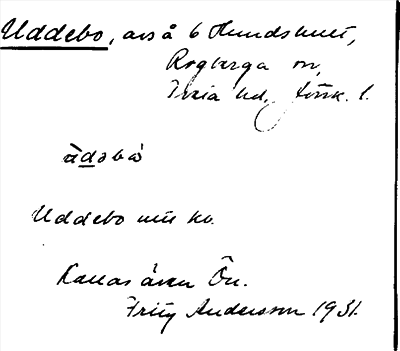 Uddebo, avs å 6 Hundshult,
Rogberga sn,
Tveta hd, Jönk. l.
ùdəbò
Uddebo
Kallas även Ön.
Fritz Andersson 1931.